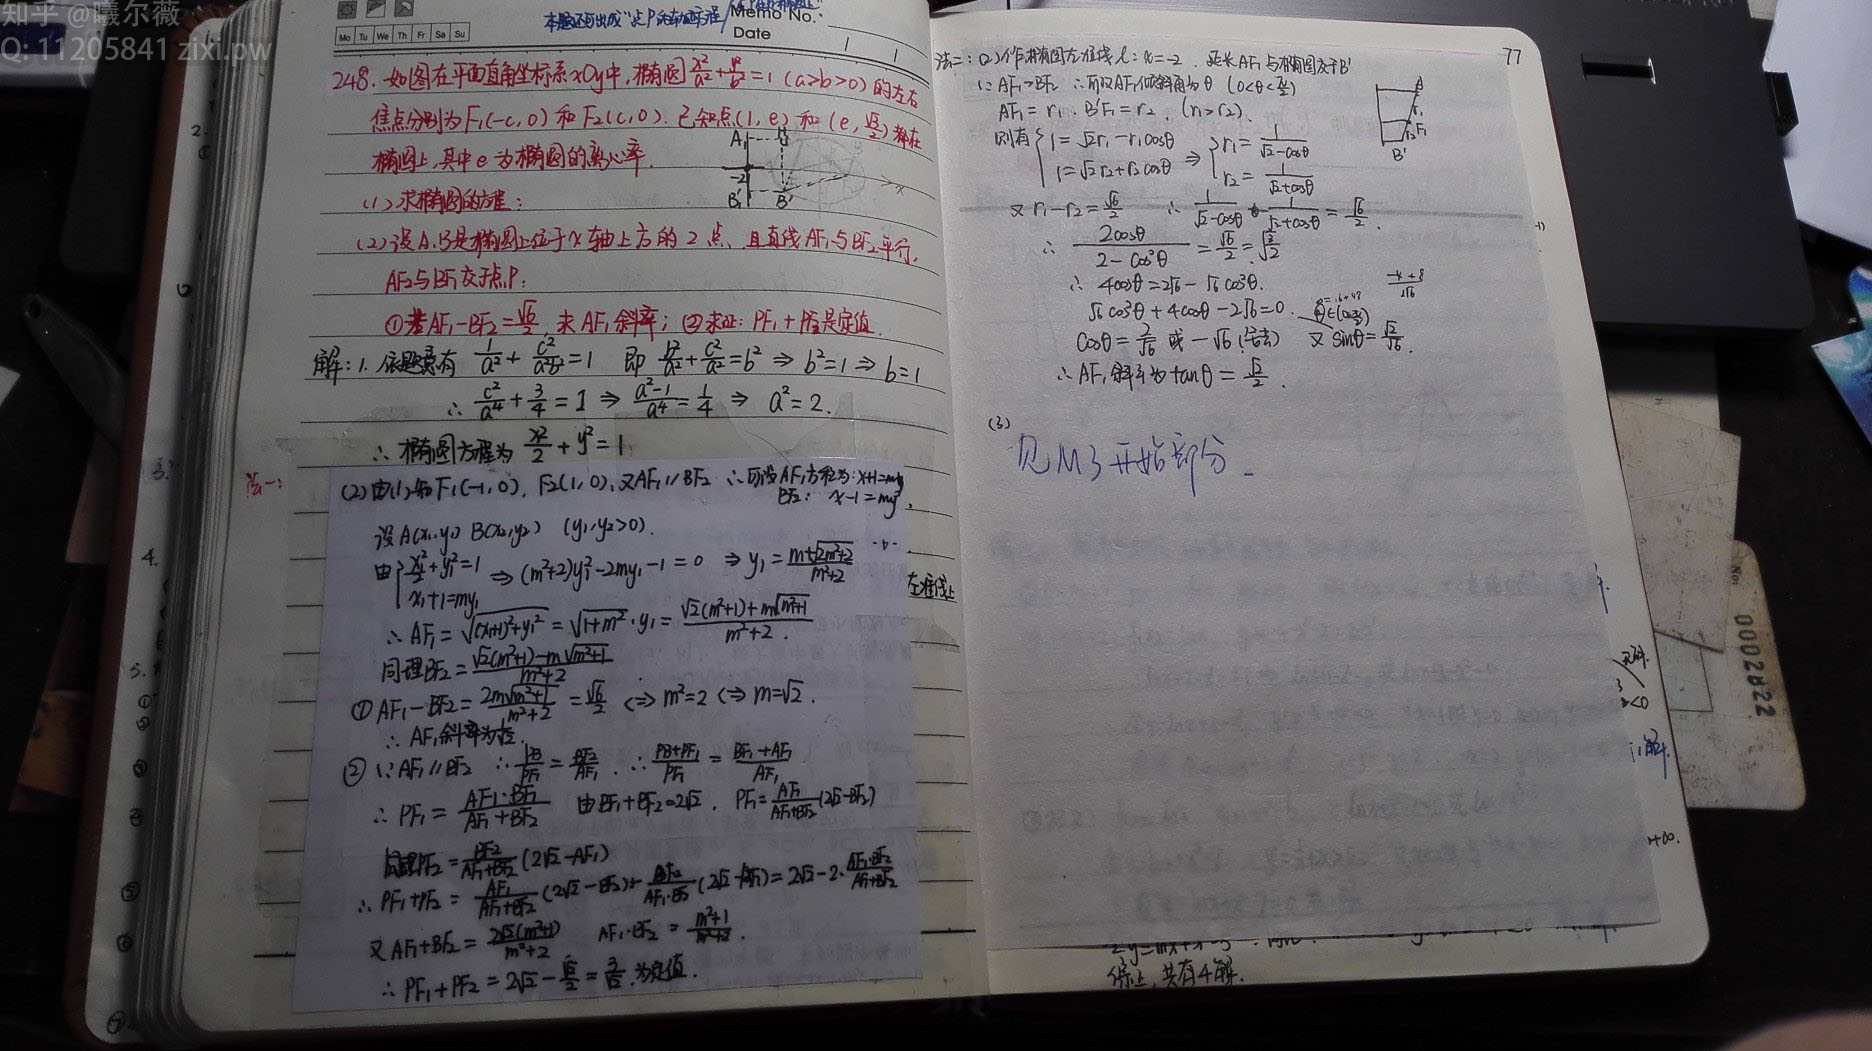 知乎 @曦尔薇
Q: 11205841 zixi.pw
Memo No.
Mo Tu We Th Fr Sa Su
Date
248. 如图在平面直角坐标系xOy中,椭圆x²/a²+y²/b²=1 (a>b>0) 的左右
焦点分别为F₁(-c,0) 和 F₂(c,0). 已知点(1,e) 和 (e,√3/2) 都在
椭圆上,其中 e 为椭圆的离心率.
(1) 求椭圆的方程;
(2) 设A.B是椭圆上位于x轴上方的2点、且直线AF₁与BF₂平行,
AF₂与BF₁交于点P:
①若AF₁-BF₂=√6/2,求AF₁斜率; ②求证: PF₁+PF₂是定值.
A₁
-2
B₁'
B'
x
解: 1. 依题意有 1/a²+c²/a²b²=1 即 b²/a²+c²/a²=b² ⇒ b²=1 ⇒ b=1
∴ c²/a⁴+3/4=1 ⇒ (a²-1)/a⁴=1/4 ⇒ a²=2.
∴ 椭圆方程为 x²/2+y²=1
法一:
(2) 由(1)知F₁(-1,0), F₂(1,0), 又AF₁//BF₂ ∴可设AF₁方程为: x+1=my
BF₂: x-1=my,
设A(x₁,y₁) B(x₂,y₂) (y₁,y₂>0).
由{x₁²/2+y₁²=1
x₁+1=my₁ ⇒ (m²+2)y₁²-2my₁-1=0 ⇒ y₁=(m+√(2m²+2))/(m²+2)
∴ AF₁=√((x₁+1)²+y₁²)=√(1+m²)·y₁=(√2(m²+1)+m√(m²+1))/(m²+2).
同理BF₂=(√2(m²+1)-m√(m²+1))/(m²+2)
① AF₁-BF₂=2m√(m²+1)/(m²+2)=√6/2 ⇔ m²=2 ⇔ m=√2.
∴ AF₁斜率为1/√2.
② ∵AF₁//BF₂ ∴PB/PF₁=BF₂/AF₁ ∴(PB+PF₁)/PF₁=(BF₂+AF₁)/AF₁
∴ PF₁=AF₁·BF₁/(AF₁+BF₂) 由BF₁+BF₂=2√2, PF₁=AF₁/(AF₁+BF₂)(2√2-BF₂)
同理PF₂=BF₂/(AF₁+BF₂)(2√2-AF₁)
∴ PF₁+PF₂=AF₁/(AF₁+BF₂)(2√2-BF₂)+BF₂/(AF₁+BF₂)(2√2-AF₁)=2√2-2·AF₁·BF₂/(AF₁+BF₂)
又AF₁+BF₂=2√2(m²+1)/(m²+2) AF₁·BF₂=(m²+1)/(m²+2).
∴ PF₁+PF₂=2√2-√2/2=3/√2.为定值.
左准线上
77
法二: (2) 作椭圆左准线l: x=-2. 延长AF₁与椭圆交于B'
∵ AF₁>BF₂ ∴可设AF₁倾斜角为θ (0<θ<π/2)
AF₁=r₁. B'F₁=r₂. (r₁>r₂).
则有{1=√2r₁-r₁cosθ ⇒ {r₁=1/(√2-cosθ)
1=√2r₂+r₂cosθ r₂=1/(√2+cosθ)
A
r₁
F₁
r₂
B'
又r₁-r₂=√6/2 ∴ 1/(√2-cosθ)-1/(√2+cosθ)=√6/2.
∴ 2cosθ/(2-cos²θ)=√6/2=√(3/2)
∴ 4cosθ=2√6-√6cos²θ.
√6cos²θ+4cosθ-2√6=0.
(-4+8)/2√6
cosθ=2/√6 或 -√6(舍去) 又sinθ=√2/√6.
∴ AF₁斜率为tanθ=√2/2.
(3)
见M3开始部分
综上,共有4解.
0002822
No:
2.
4.
5.